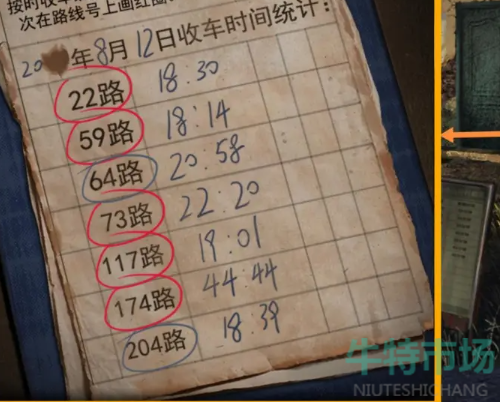 按时收车
次在路线号上画红圈
20 年8月12日收车时间统计：
22路 18:30
59路 18:14
64路 20:58
73路 22:20
117路 19:01
174路 44:44
204路 18:39
牛特市场
NIUTESHICHANG